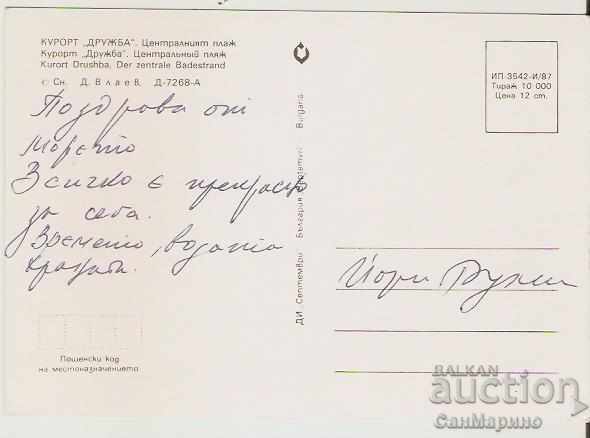 КУРОРТ „ДРУЖБА". Централният плаж
Курорт „Дружба". Центральный пляж
Kurort Drushba. Der zentrale Badestrand
Сн. Д. Влаев, Д-7268-А
Поздрава от
Морето
Всичко е прекрасно
за сега.
Времето, водата
храната.
ДИ Септември България Bulgaria
ИП-3542-И/87
Тираж 10 000
Цена 12 ст.
Пощенски код
на местоназначението
BALKAN
auction
СанМарино